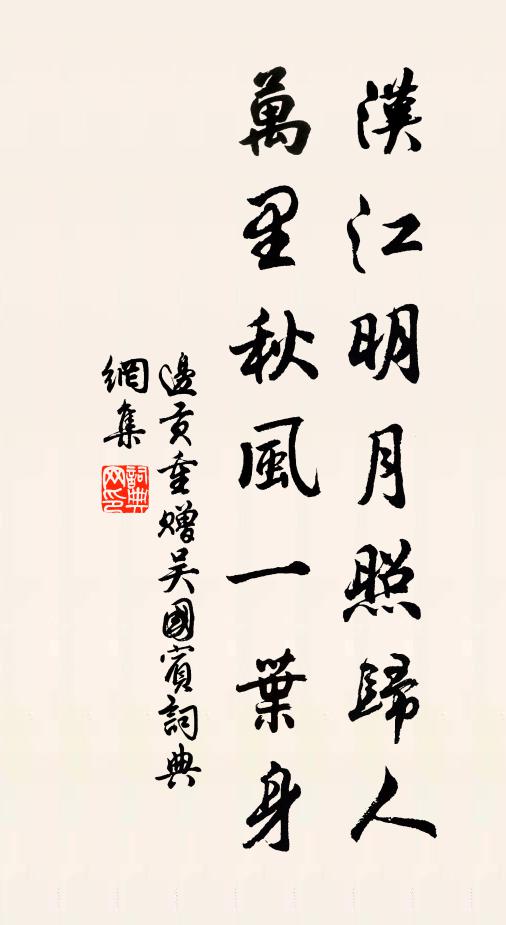 漢江明月照歸人
萬里秋風一葉身
邊貢重贈吴國賓詞典
網集
詞典網印